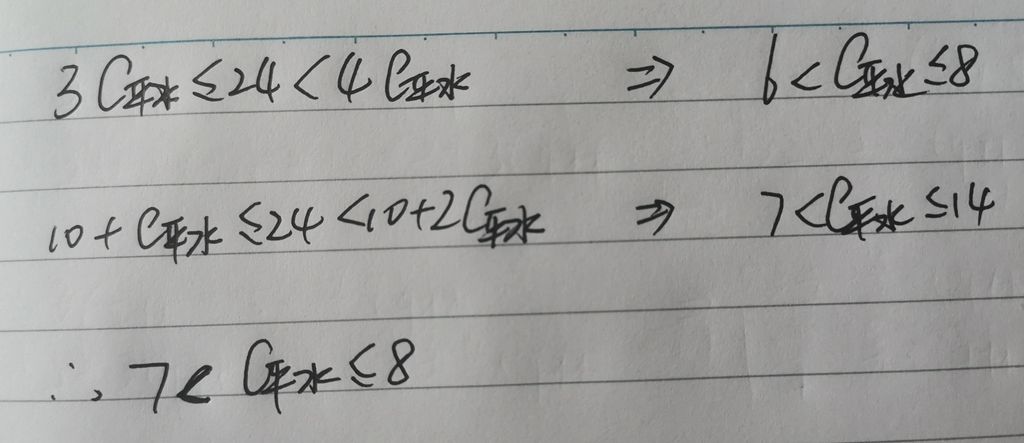 3C平水≤24<4C平水 ⇒ 6<C平水≤8
10+C平水≤24<10+2C平水 ⇒ 7<C平水≤14
∴ 7<C平水≤8